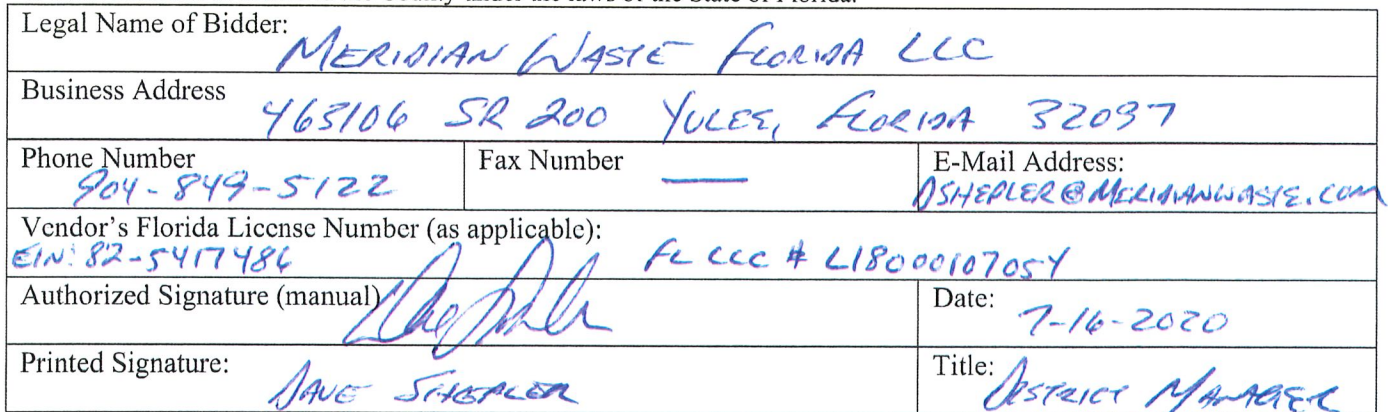 County under the laws of the State of Florida.
Legal Name of Bidder:
MERIDIAN WASTE FLORIDA LLC
Business Address
463106 SR 200 YULEE, FLORIDA 32097
Phone Number Fax Number E-Mail Address:
904-849-5122 — DSHEPLER@MERIDIANWASTE.COM
Vendor's Florida License Number (as applicable):
EIN: 82-5417486 FL LLC # L18000107054
Authorized Signature (manual) Date:
7-16-2020
Printed Signature: Title:
DAVE SHEPLER DISTRICT MANAGER